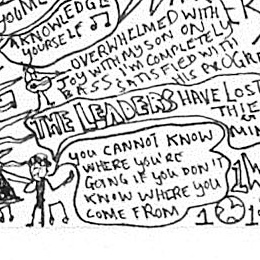 KNOWLEDGE
YOURSELF
OVERWHELMED WITH
JOY WITH MY SON ON
BASS I'M COMPLETELY
SATISFIED WITH
HIS PROGRE
THE LEADERS HAVE LOST
THIE
MIN
YOU CANNOT KNOW
WHERE YOU'RE
GOING IF YOU DON'T
KNOW WHERE YOU
COME FROM